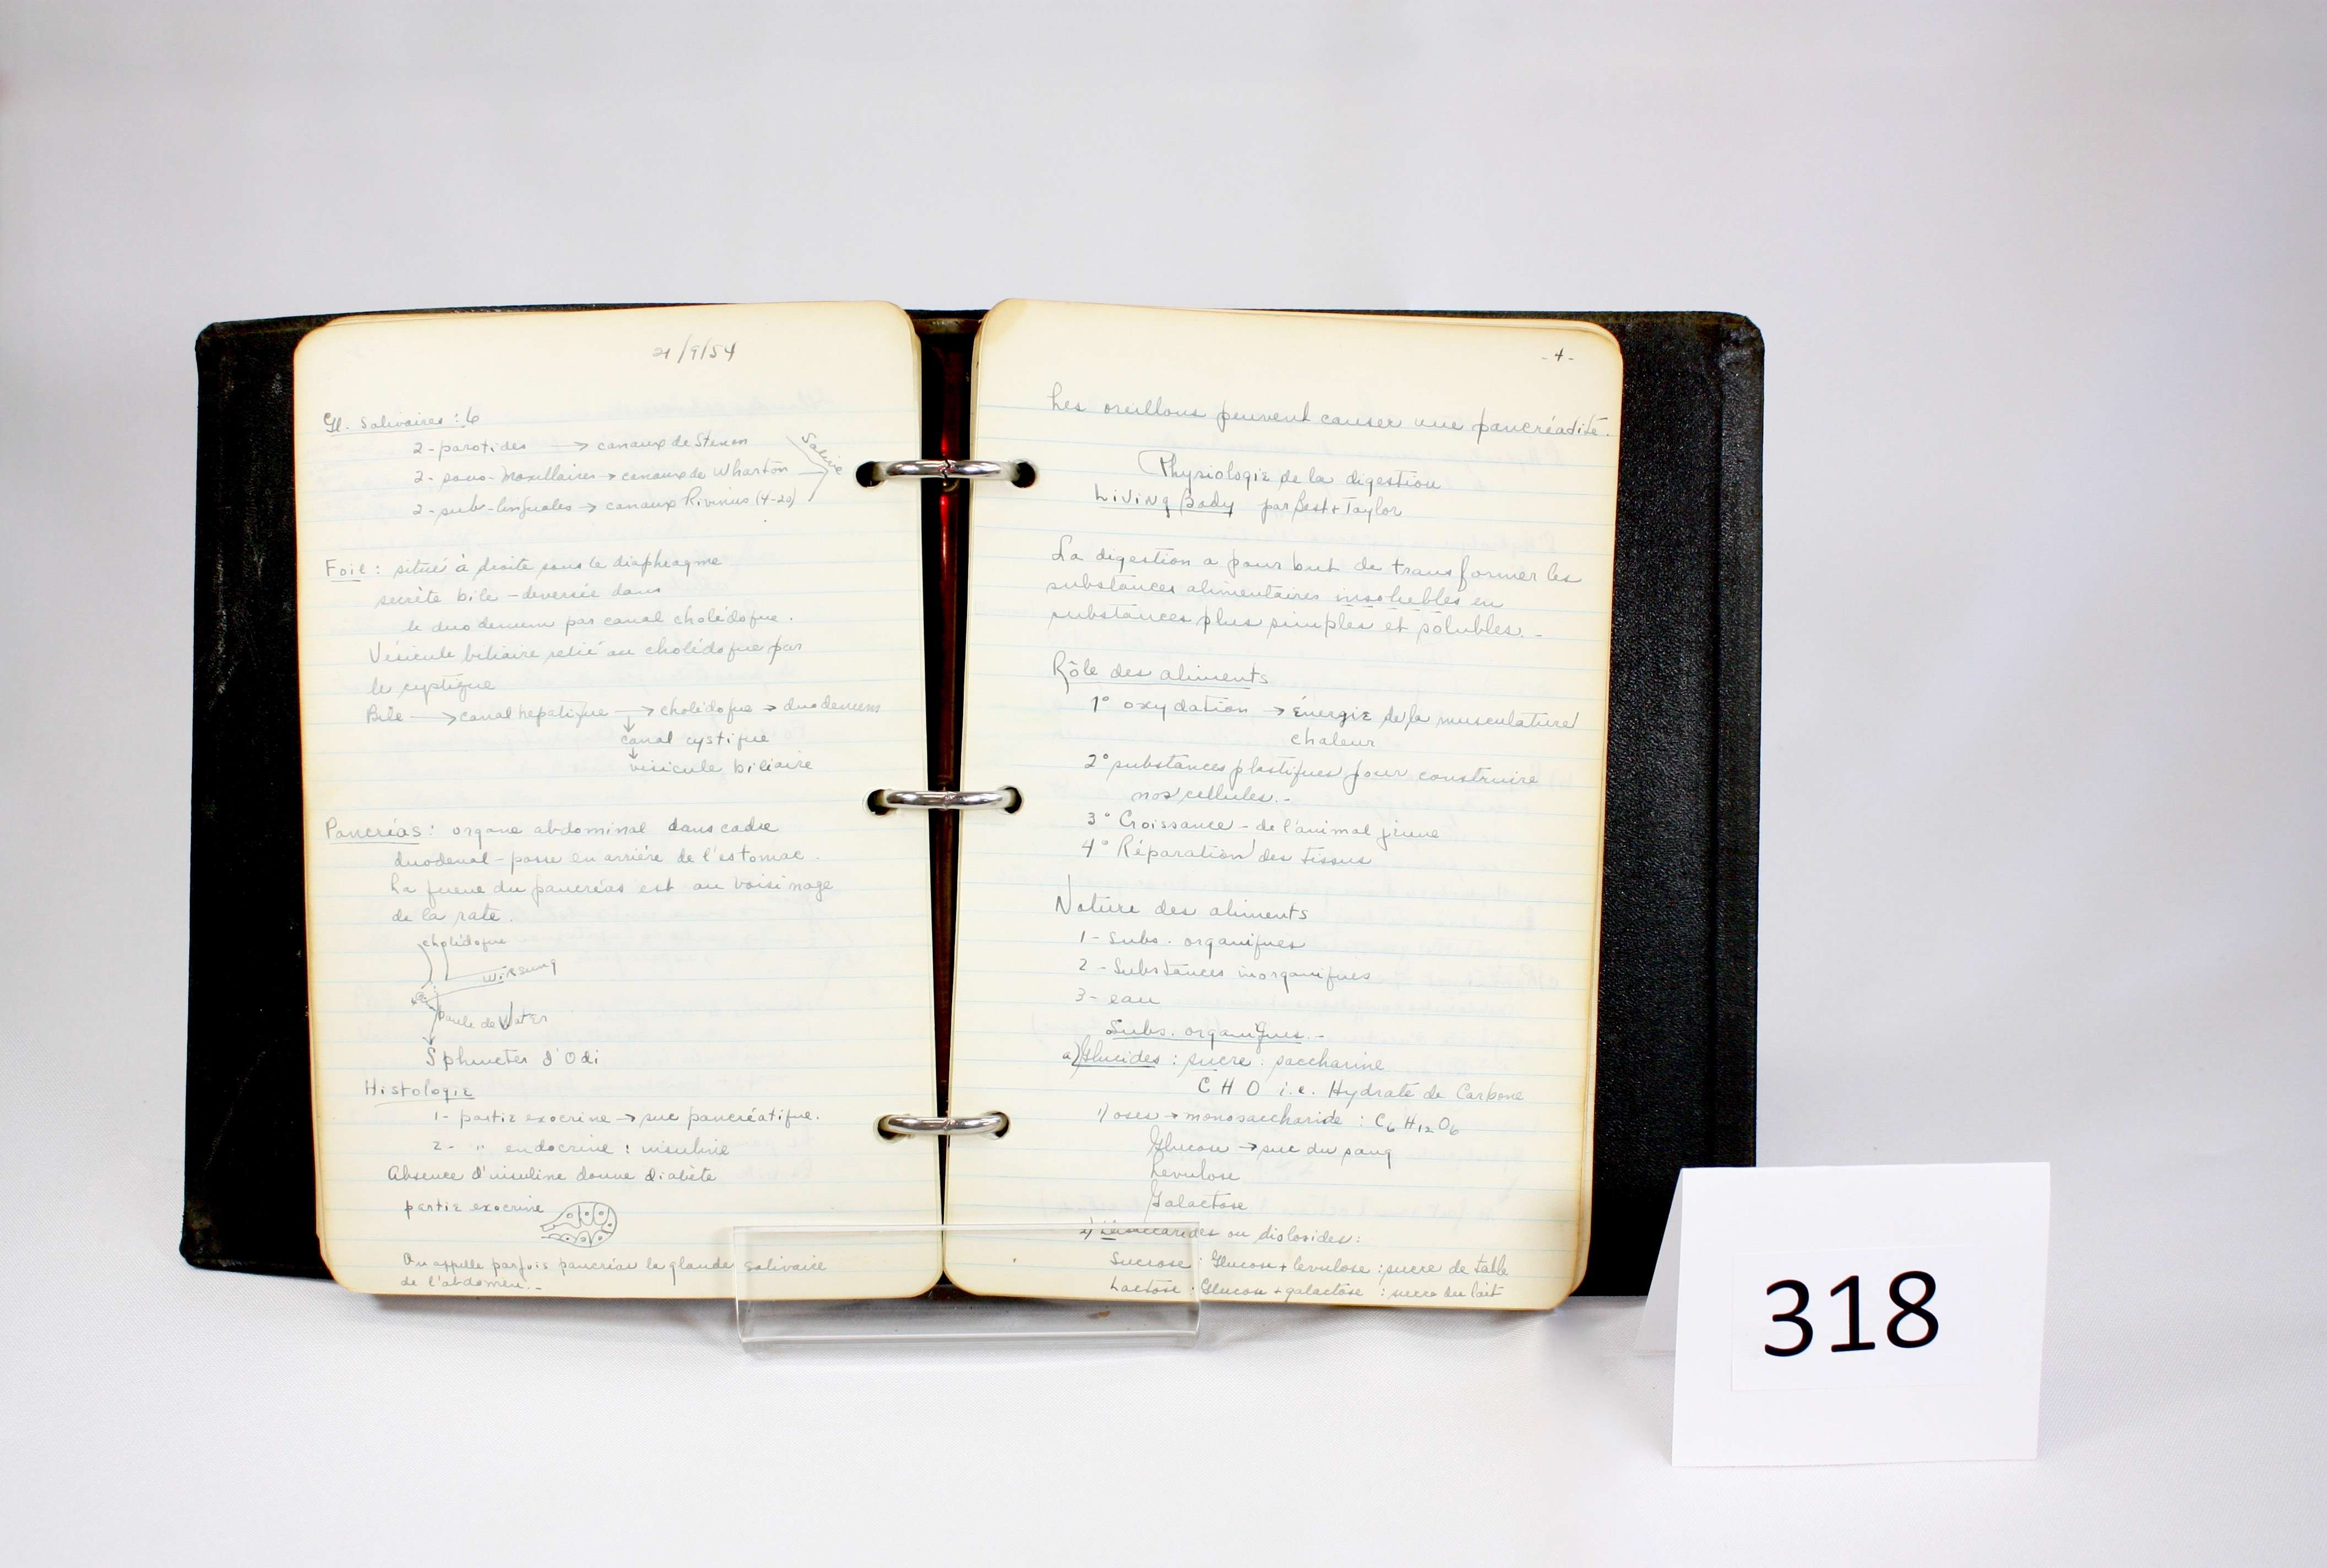 21/9/54
Gl. Salivaires : 6
2 - parotides → canaux de Stenon
2 - sous-maxillaires → canaux de Wharton → Salive
2 - sub-linguales → canaux Rivinus (4-20)
Foie : situé à droite sous le diaphragme
secrète bile - deversée dans
le duodenum par canal cholédoque.
Vésicule biliaire relié au cholédoque par
le cystique
Bile → canal hepatique → cholédoque → duodenum
canal cystique
vésicule biliaire
Pancréas : organe abdominal dans cadre
duodenal - passe en arrière de l'estomac.
La queue du pancréas est au voisinage
de la rate.
cholédoque
Wirsung
de Vater
Sphincter d'Odi
Histologie
1 - partie exocrine → suc pancréatique.
2 - " endocrine : insuline
Absence d'insuline donne diabète
partie exocrine
On appelle parfois pancréas la glande salivaire
de l'abdomen. -
- 4 -
Les oreillons peuvent causer une pancréadite.
Physiologie de la digestion
Living Body par Best + Taylor
La digestion a pour but de transformer les
substances alimentaires insolubles en
substances plus simples et solubles. -
Rôle des aliments
1° oxydation → énergie de la musculature
chaleur
2° substances plastiques pour construire
nos cellules. -
3° Croissance - de l'animal jeune
4° Réparation des tissus
Nature des aliments
1 - Subs. organiques
2 - Substances inorganiques
3 - eau
Subs. organiques. -
a) Glucides : sucre : saccharine
C H O i.e. Hydrate de Carbone
1) oses → monosaccharide : C6 H12 O6
Glucose → suc du sang
Levulose
Galactose
2) ou diolosides :
Sucrose : Glucose + levulose : sucre de table
Lactose : Glucose + galactose : sucre du lait
318